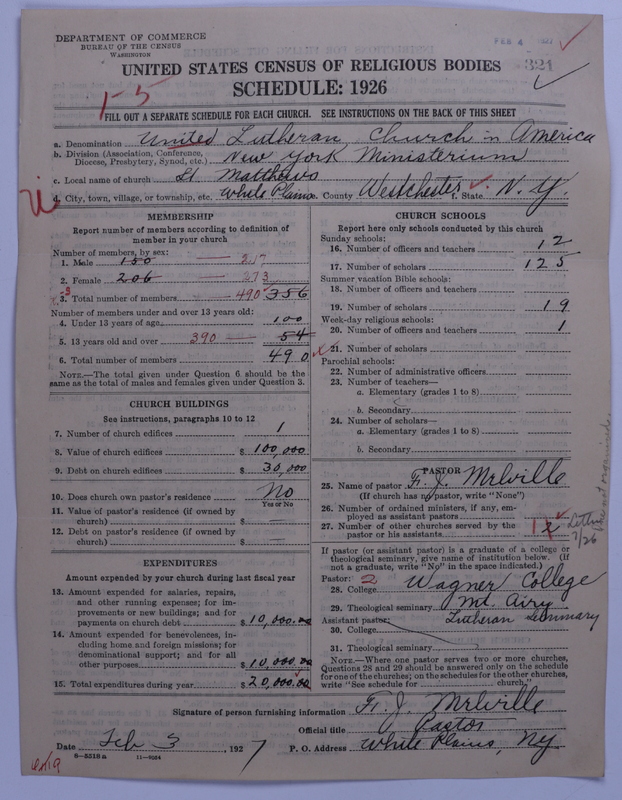 DEPARTMENT OF COMMERCE
BUREAU OF THE CENSUS
WASHINGTON
FEB 4 1927
321
UNITED STATES CENSUS OF RELIGIOUS BODIES
SCHEDULE: 1926
1-5
FILL OUT A SEPARATE SCHEDULE FOR EACH CHURCH. SEE INSTRUCTIONS ON THE BACK OF THIS SHEET
a. Denomination United Lutheran Church in America
b. Division (Association, Conference, Diocese, Presbytery, Synod, etc.) New York Ministerium
c. Local name of church St Matthews
d. City, town, village, or township, etc. White Plains e. County Westchester f. State N. Y.
MEMBERSHIP
Report number of members according to definition of member in your church
Number of members, by sex:
1. Male 150 — 217
2. Female 206 — 273
3. Total number of members 490 356
Number of members under and over 13 years old:
4. Under 13 years of age 100
5. 13 years old and over 390 54
6. Total number of members 490
NOTE.—The total given under Question 6 should be the same as the total of males and females given under Question 3.
CHURCH BUILDINGS
See instructions, paragraphs 10 to 12
7. Number of church edifices 1
8. Value of church edifices $ 100,000
9. Debt on church edifices $ 30,000
10. Does church own pastor's residence No
Yes or No
11. Value of pastor's residence (if owned by church) $ —
12. Debt on pastor's residence (if owned by church) $ —
EXPENDITURES
Amount expended by your church during last fiscal year
13. Amount expended for salaries, repairs, and other running expenses; for improvements or new buildings; and for payments on church debt $ 10,000.00
14. Amount expended for benevolences, including home and foreign missions; for denominational support; and for all other purposes $ 10,000.00
15. Total expenditures during year $ 20,000.00
CHURCH SCHOOLS
Report here only schools conducted by this church
Sunday schools:
16. Number of officers and teachers 12
17. Number of scholars 125
Summer vacation Bible schools:
18. Number of officers and teachers
19. Number of scholars 19
Week-day religious schools:
20. Number of officers and teachers 1
21. Number of scholars
Parochial schools:
22. Number of administrative officers
23. Number of teachers—
a. Elementary (grades 1 to 8)
b. Secondary
24. Number of scholars—
a. Elementary (grades 1 to 8)
b. Secondary
PASTOR
25. Name of pastor Fr. J. Melville
(If church has no pastor, write "None")
26. Number of ordained ministers, if any, employed as assistant pastors
27. Number of other churches served by the pastor or his assistants 1
7/26 not organized.
If pastor (or assistant pastor) is a graduate of a college or theological seminary, give name of institution below. (If not a graduate, write "No" in the space indicated.)
Pastor: 2
28. College Wagner College
29. Theological seminary Mt. Airy
Assistant pastor: Lutheran Seminary
30. College
31. Theological seminary
NOTE.—Where one pastor serves two or more churches, Questions 28 and 29 should be answered only on the schedule for one of the churches; on the schedules for the other churches, write "See schedule for ........ church."
Signature of person furnishing information Fr. J. Melville
Official title Pastor
Date Feb 3, 1927
P. O. Address White Plains, NY.
8-5318a 11-9084